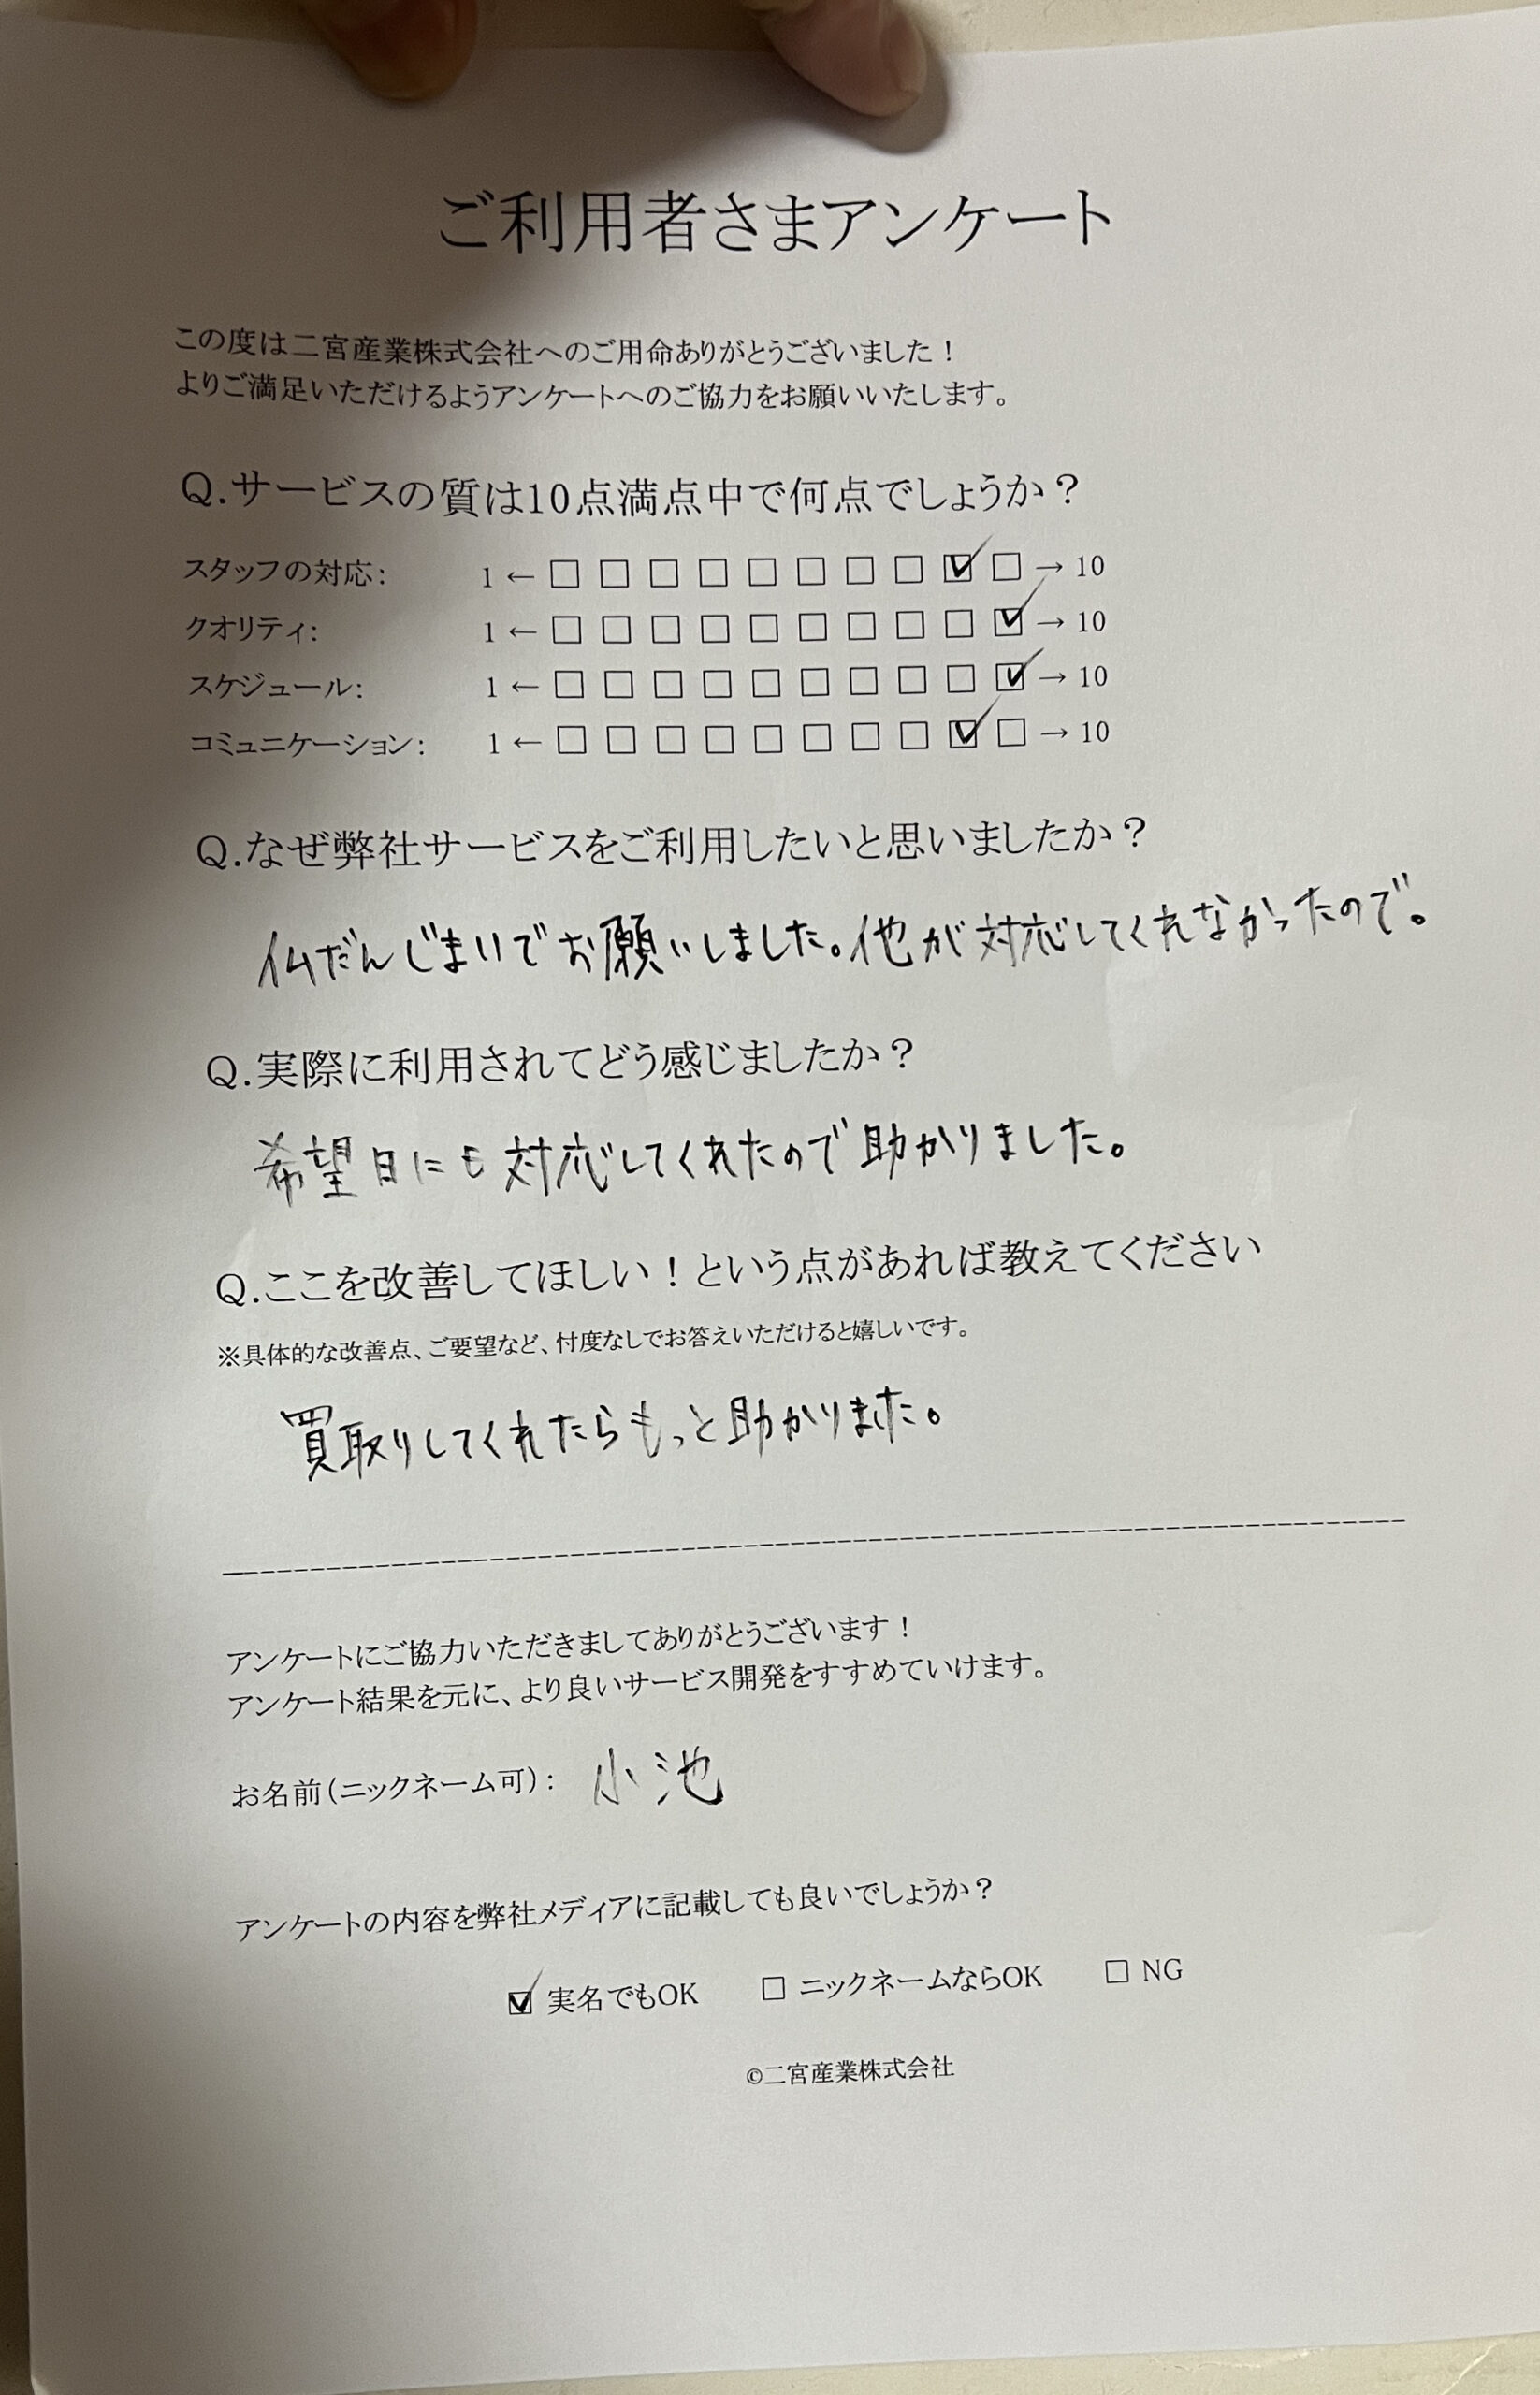 ご利用者さまアンケート
この度は二宮産業株式会社へのご用命ありがとうございました！
よりご満足いただけるようアンケートへのご協力をお願いいたします。
Q.サービスの質は10点満点中で何点でしょうか？
スタッフの対応: 1 ← □ □ □ □ □ □ □ □ ☑ □ → 10
クオリティ: 1 ← □ □ □ □ □ □ □ □ □ ☑ → 10
スケジュール: 1 ← □ □ □ □ □ □ □ □ □ ☑ → 10
コミュニケーション: 1 ← □ □ □ □ □ □ □ □ ☑ □ → 10
Q.なぜ弊社サービスをご利用したいと思いましたか？
仏だんじまいでお願いしました。他が対応してくれなかったので。
Q.実際に利用されてどう感じましたか？
希望日にも対応してくれたので助かりました。
Q.ここを改善してほしい！という点があれば教えてください
※具体的な改善点、ご要望など、忖度なしでお答えいただけると嬉しいです。
買取りしてくれたらもっと助かりました。
アンケートにご協力いただきましてありがとうございます！
アンケート結果を元に、より良いサービス開発をすすめていけます。
お名前(ニックネーム可): 小池
アンケートの内容を弊社メディアに記載しても良いでしょうか？
☑ 実名でもOK □ ニックネームならOK □ NG
©二宮産業株式会社